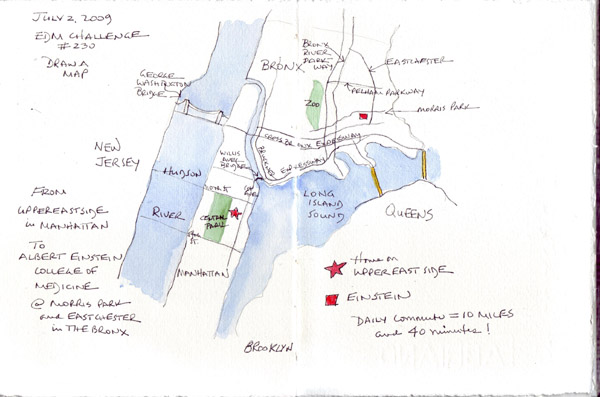 JULY 2, 2009
EDM CHALLENGE
#230
DRAW A
MAP
GEORGE
WASHINGTON
BRIDGE
BRONX
BRONX
RIVER
PARK-
WAY
EASTCHESTER
PELHAM PARKWAY
MORRIS PARK
ZOO
CROSS BRONX EXPRESSWAY
BRUCKNER EXPRESSWAY
WILLIS
AVE
BRIDGE
NEW
JERSEY
HUDSON
RIVER
CENTRAL
PARK
MANHATTAN
LONG
ISLAND
SOUND
QUEENS
BROOKLYN
FROM
UPPER EAST SIDE
in MANHATTAN
TO
ALBERT EINSTEIN
COLLEGE OF
MEDICINE
@ MORRIS PARK
and EASTCHESTER
in THE BRONX
Home on
UPPER EAST SIDE
EINSTEIN
DAILY COMMUTE = 10 MILES
and 40 minutes!